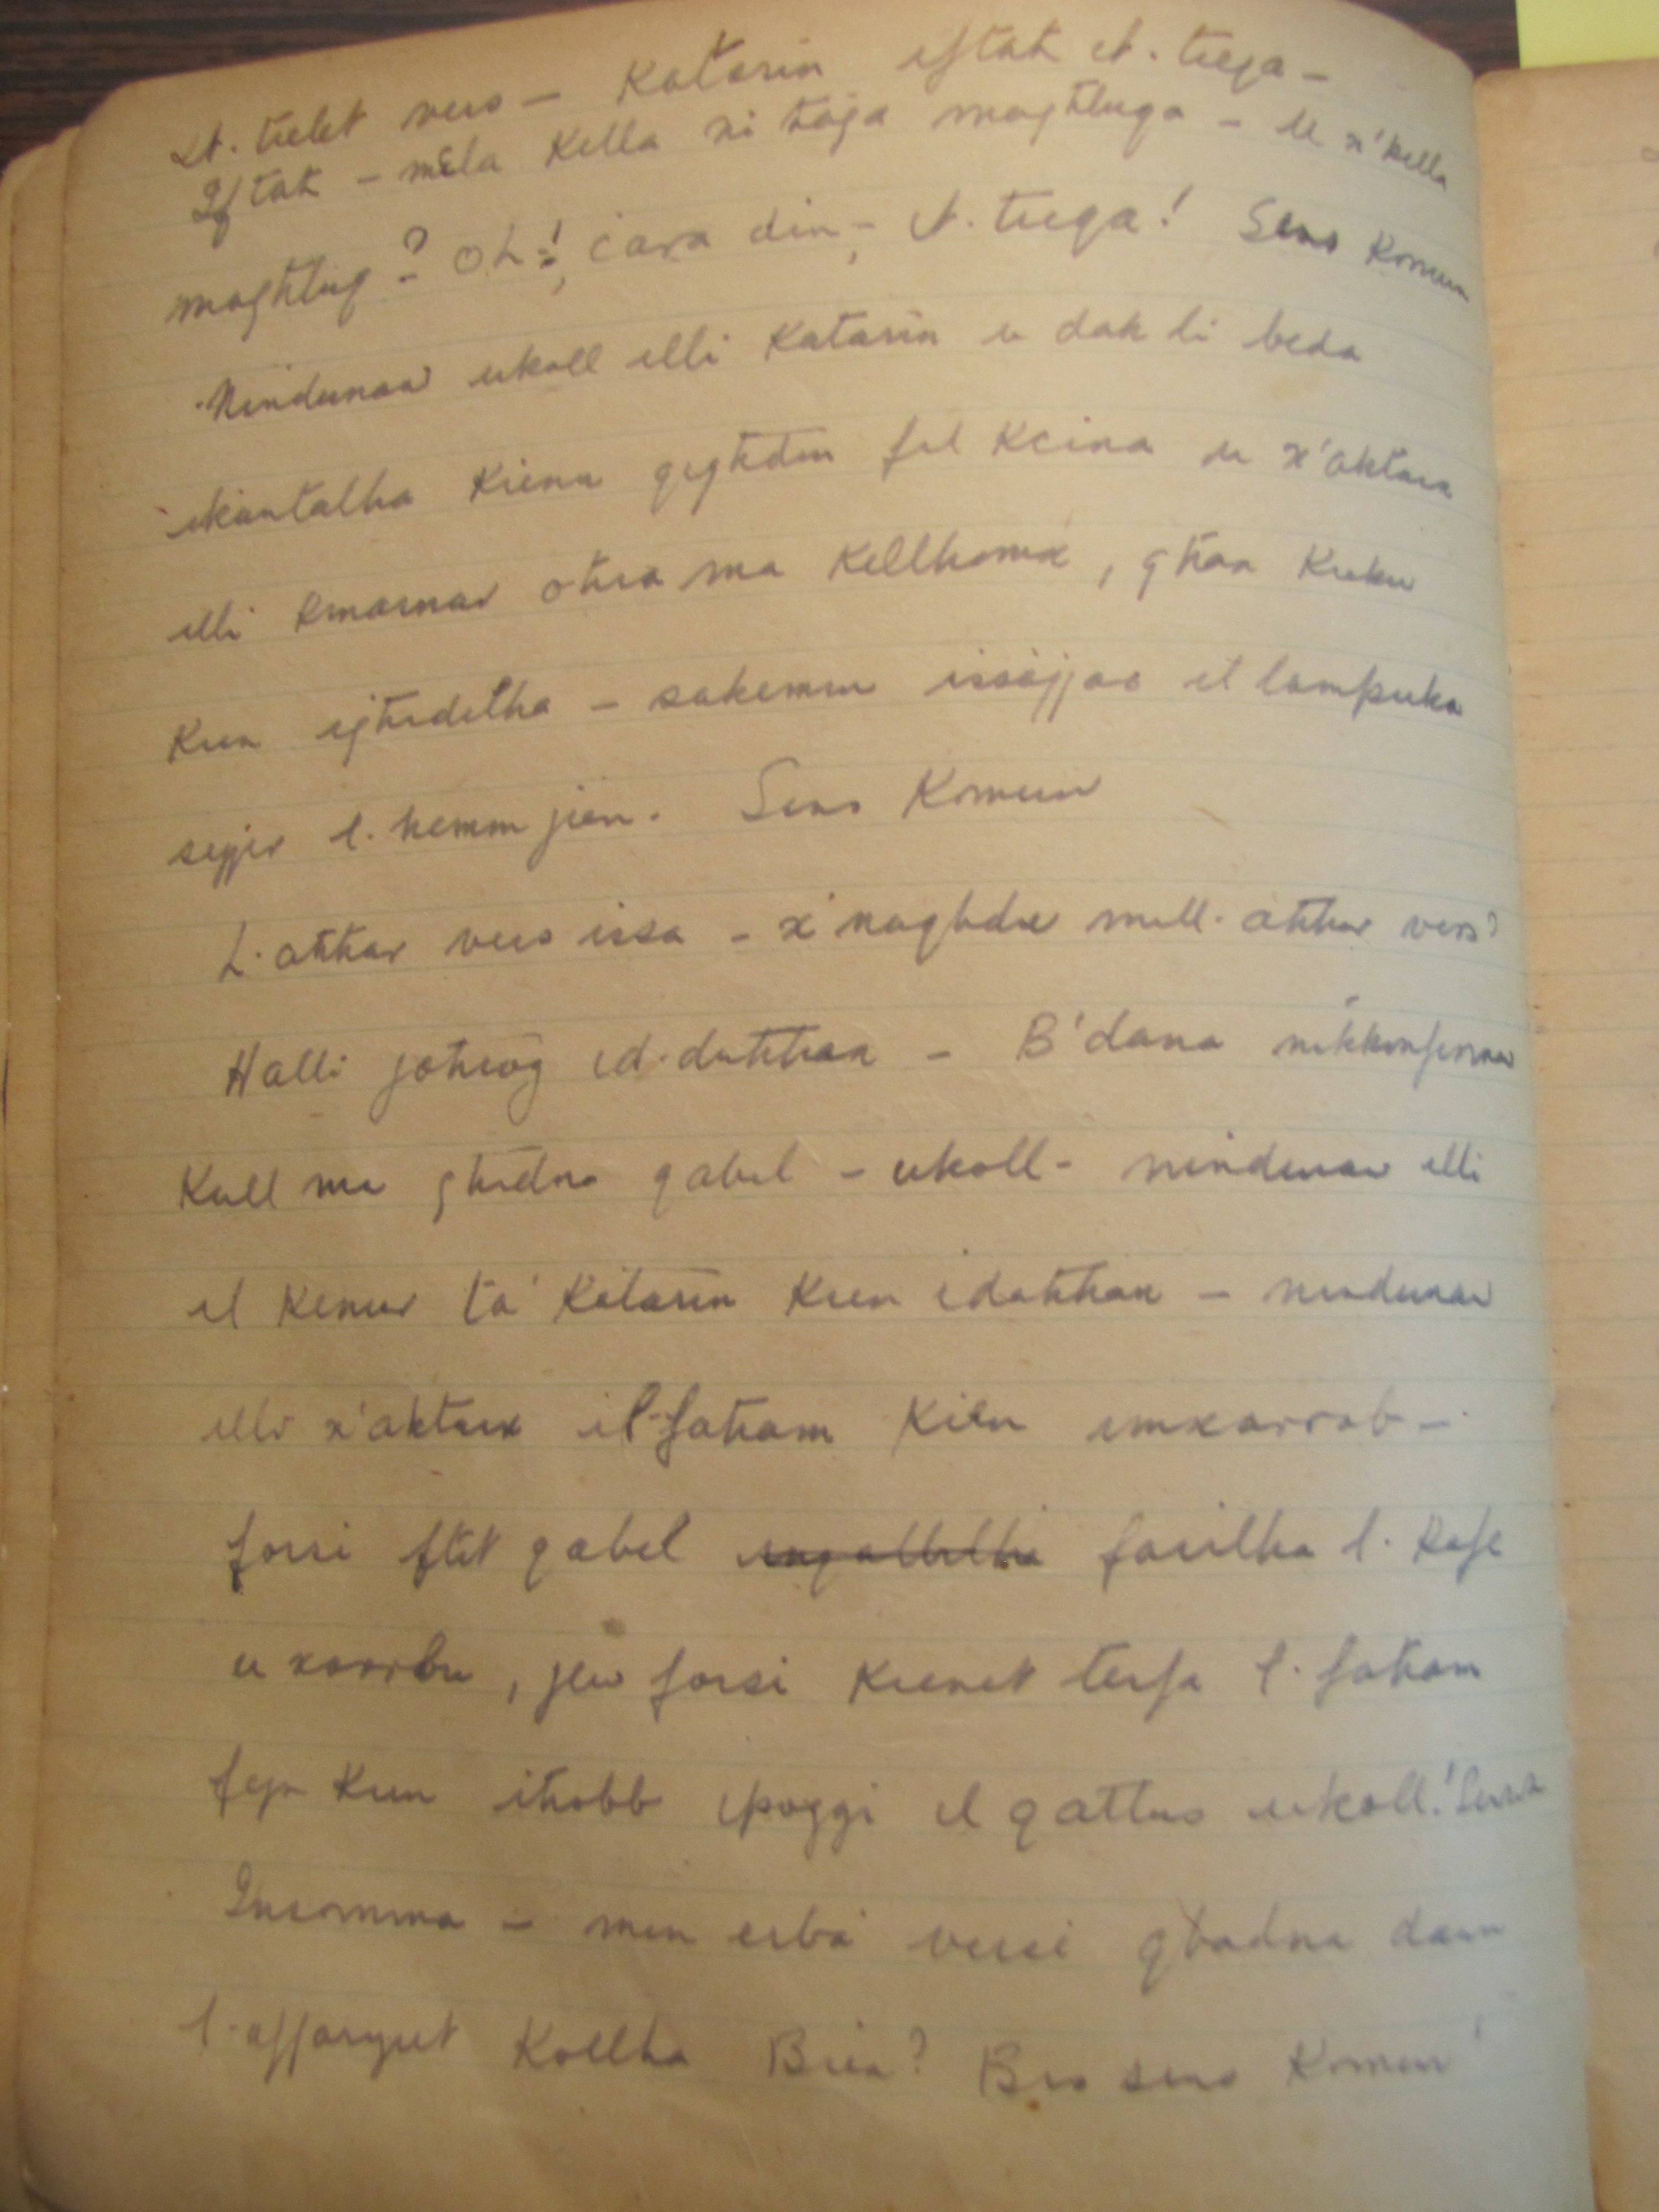 It. tielet vers – Katarin iftaħ it. tieqa –
Iftaħ – mela Kella xi taqa magħluqa – U x'kella
magħluq? Oh!, cara din, – it. tieqa! Sens Komun
Nindunaw ukoll illi Katarin u dak li beda
ikantalha Kienu qegħdin fil Kcina u x'aktarx
illi kmamar oħra ma Kellhomx, għax Kieku
Kien igħidilha – sakemm issajjar il lampuka
sejjer l. hemm jien. Sens Komun
L. aħħar vers issa – x' naqbdu mill. aħħar vers?
Ħalli joħroġ id. duħħan – B'dana nikkonfermaw
Kull ma għidna qabel – ukoll – nindunaw illi
il Kenur ta' Katarin Kien idaħħan – nindunaw
illi x'aktarx il-faħam Kien imxarrab –
forsi ftit qabel farilha l. Kafe
u xarrbu, jew forsi Kienet terfa l. faħam
fejn Kien iħobb ipoġġi il qattus ukoll! Sens
Insomma – minn erba' versi qbadna dawn
l. affarijiet Kollha Biex? Bis sens Komun